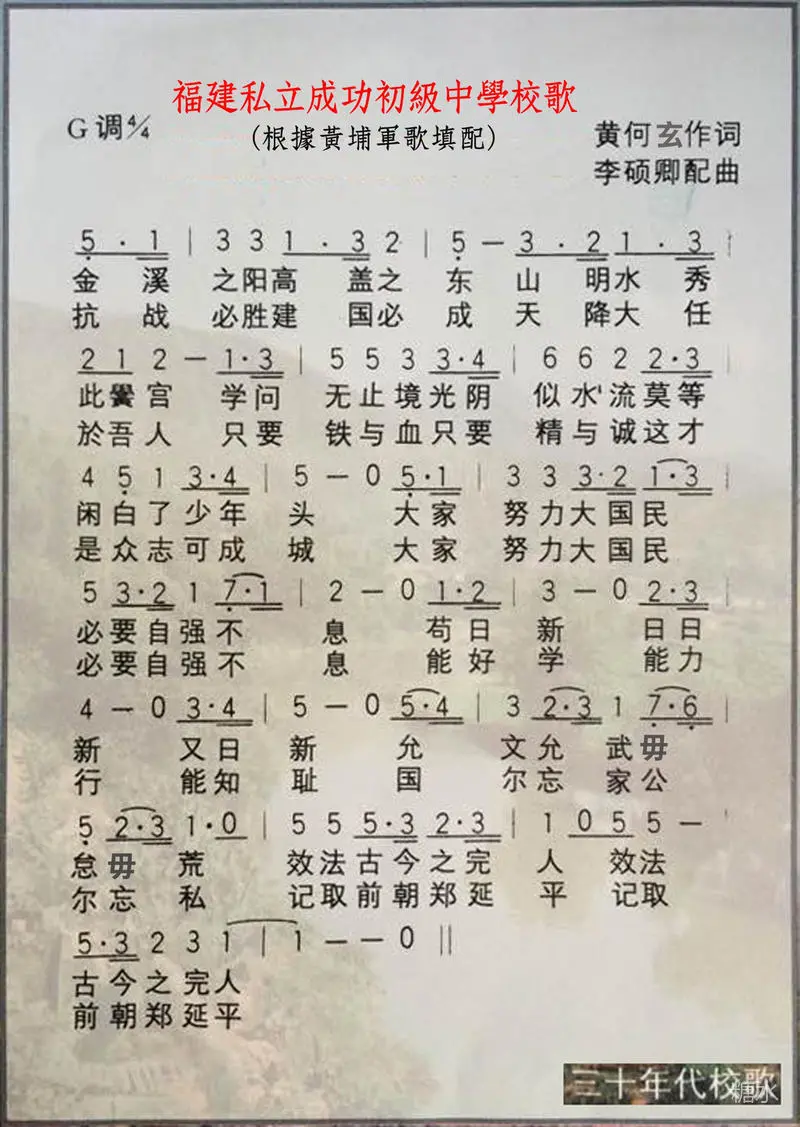 福建私立成功初級中學校歌
G调4/4
(根據黃埔軍歌填配)
黄何玄作词
李硕卿配曲
5 · 1 | 3 3 1 · 3 2 | 5 — 3 · 2 1 · 3 |
金溪之阳高盖之东山明水秀
抗战必胜建国必成天降大任
2 1 2 — 1·3 | 5 5 3 3·4 | 6 6 2 2·3 |
此黉宫学问无止境光阴似水流莫等
於吾人只要铁与血只要精与诚这才
4 5 1 3·4 | 5 — 0 5·1 | 3 3 3·2 1·3 |
闲白了少年头大家努力大国民
是众志可成城大家努力大国民
5 3·2 1 7·1 | 2 — 0 1·2 | 3 — 0 2·3 |
必要自强不息苟日新日日
必要自强不息能好学能力
4 — 0 3·4 | 5 — 0 5·4 | 3 2·3 1 7·6 |
新又日新允文允武毋
行能知耻国尔忘家公
5 2·3 1·0 | 5 5 5·3 2·3 | 1 0 5 5 —
怠毋荒效法古今之完人效法
尔忘私记取前朝郑延平记取
5·3 2 3 1 | 1 — — 0 ||
古今之完人
前朝郑延平
三十年代校歌
糖水